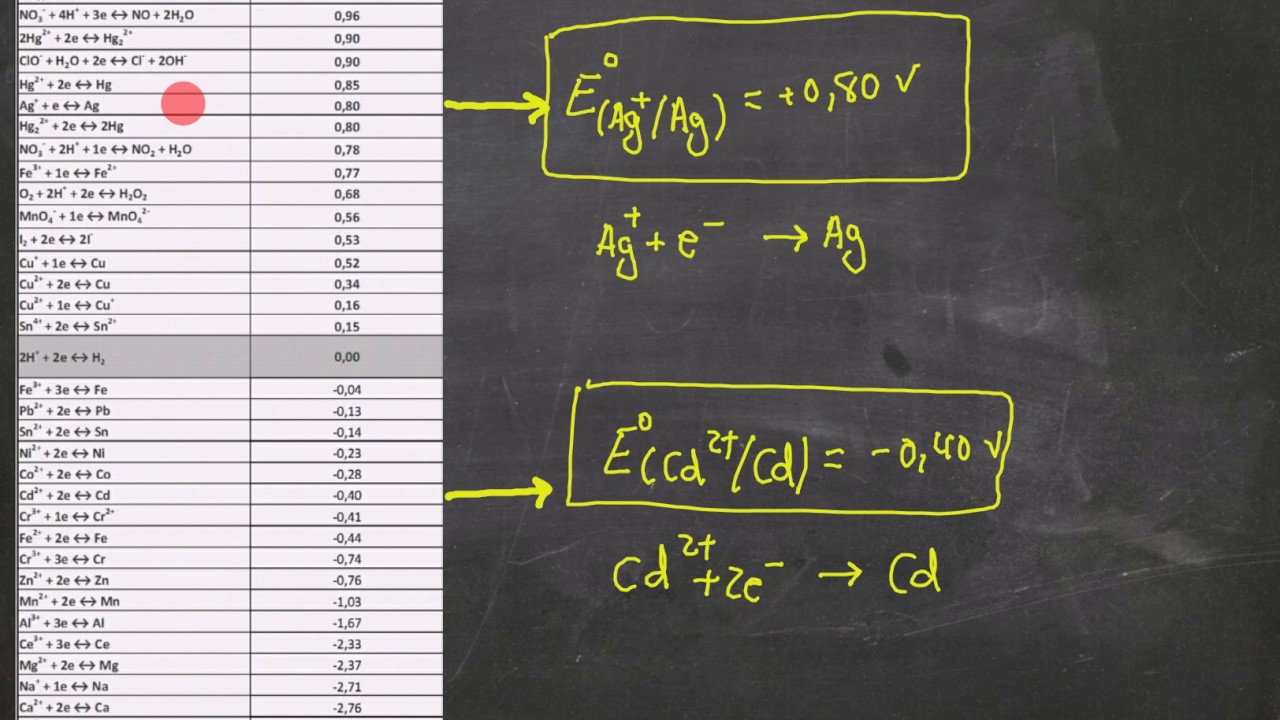 NO₃⁻ + 4H⁺ + 3e ↔ NO + 2H₂O 0,96
2Hg²⁺ + 2e ↔ Hg₂²⁺ 0,90
ClO⁻ + H₂O + 2e ↔ Cl⁻ + 2OH⁻ 0,90
Hg²⁺ + 2e ↔ Hg 0,85
Ag⁺ + e ↔ Ag 0,80
Hg₂²⁺ + 2e ↔ 2Hg 0,80
NO₃⁻ + 2H⁺ + 1e ↔ NO₂ + H₂O 0,78
Fe³⁺ + 1e ↔ Fe²⁺ 0,77
O₂ + 2H⁺ + 2e ↔ H₂O₂ 0,68
MnO₄⁻ + 1e ↔ MnO₄²⁻ 0,56
I₂ + 2e ↔ 2I⁻ 0,53
Cu⁺ + 1e ↔ Cu 0,52
Cu²⁺ + 2e ↔ Cu 0,34
Cu²⁺ + 1e ↔ Cu⁺ 0,16
Sn⁴⁺ + 2e ↔ Sn²⁺ 0,15
2H⁺ + 2e ↔ H₂ 0,00
Fe³⁺ + 3e ↔ Fe -0,04
Pb²⁺ + 2e ↔ Pb -0,13
Sn²⁺ + 2e ↔ Sn -0,14
Ni²⁺ + 2e ↔ Ni -0,23
Co²⁺ + 2e ↔ Co -0,28
Cd²⁺ + 2e ↔ Cd -0,40
Cr³⁺ + 1e ↔ Cr²⁺ -0,41
Fe²⁺ + 2e ↔ Fe -0,44
Cr³⁺ + 3e ↔ Cr -0,74
Zn²⁺ + 2e ↔ Zn -0,76
Mn²⁺ + 2e ↔ Mn -1,03
Al³⁺ + 3e ↔ Al -1,67
Ce³⁺ + 3e ↔ Ce -2,33
Mg²⁺ + 2e ↔ Mg -2,37
Na⁺ + 1e ↔ Na -2,71
Ca²⁺ + 2e ↔ Ca -2,76
E⁰(Ag⁺/Ag) = +0,80 V
Ag⁺ + e⁻ → Ag
E⁰(Cd²⁺/Cd) = -0,40 V
Cd²⁺ + 2e⁻ → Cd